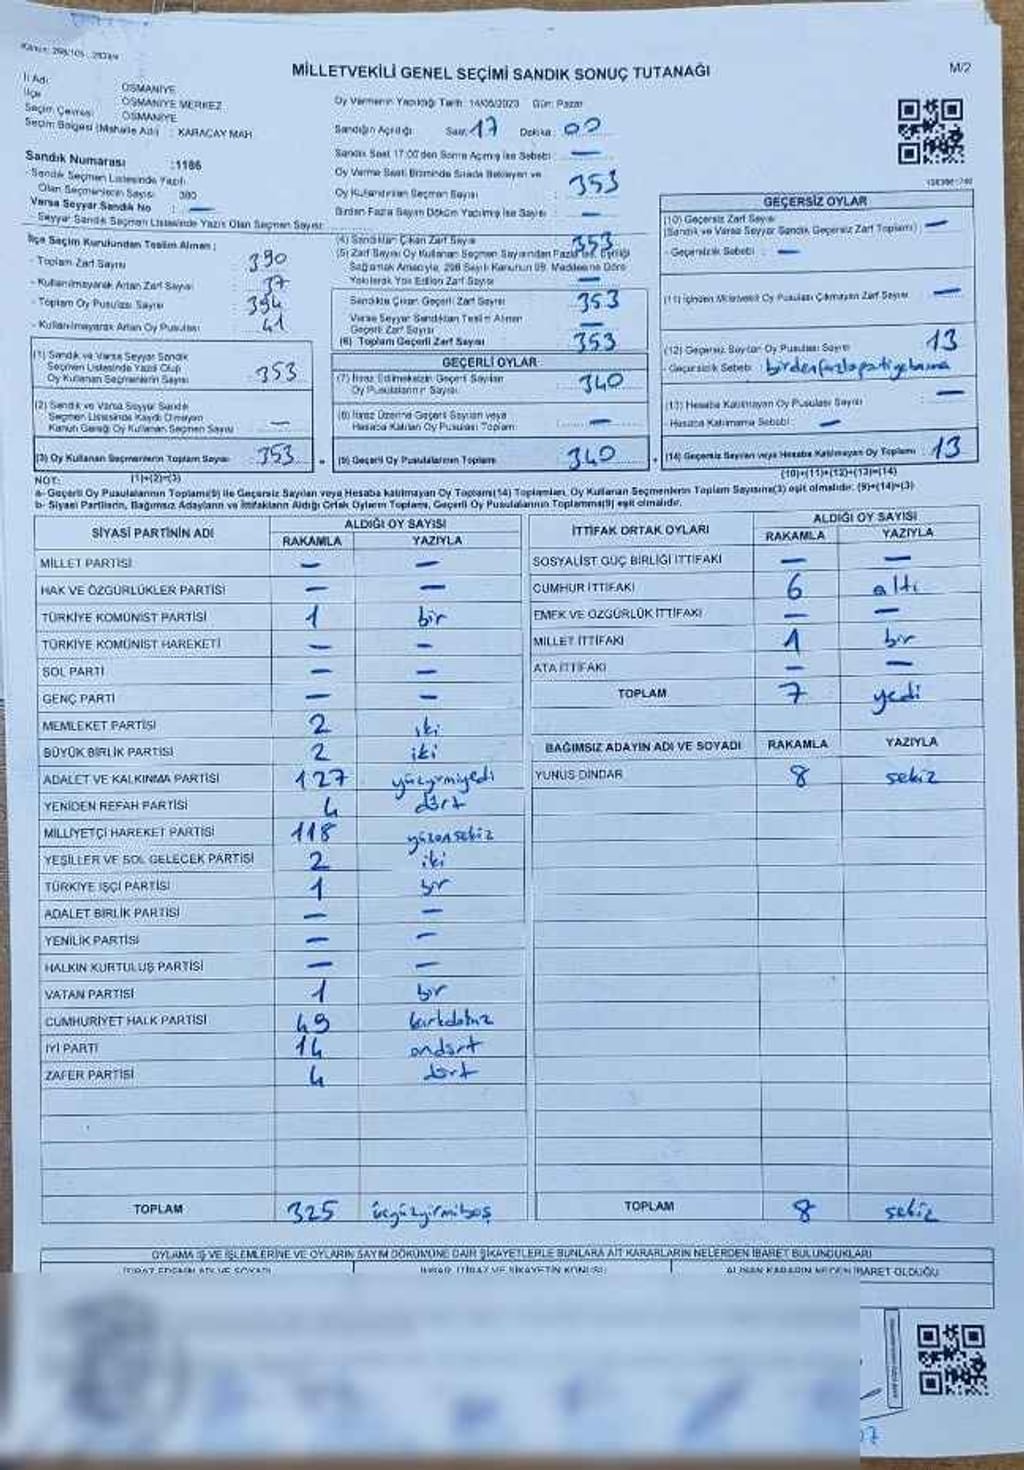 MİLLETVEKİLİ GENEL SEÇİMİ SANDIK SONUÇ TUTANAĞI
M/2
İl Adı : OSMANİYE
İlçe : OSMANİYE MERKEZ
Seçim Çevresi : OSMANİYE
Seçim Bölgesi (Mahalle Adı) : KARAÇAY MAH
Sandık Numarası : 1186
Sandık Seçmen Listesinde Yazılı
Olan Seçmenlerin Sayısı 380
Varsa Seyyar Sandık No —
Seyyar Sandık Seçmen Listesinde Yazılı Olan Seçmen Sayısı:
İlçe Seçim Kurulundan Teslim Alınan ;
- Toplam Zarf Sayısı : 390
- Kullanılmayarak Artan Zarf Sayısı : 37
- Toplam Oy Pusulası Sayısı : 394
- Kullanılmayarak Artan Oy Pusulası : 41
(1) Sandık ve Varsa Seyyar Sandık
Seçmen Listesinde Yazılı Olup
Oy Kullanan Seçmenlerin Sayısı : 353
(2) Sandık ve Varsa Seyyar Sandık
Seçmen Listesinde Kaydı Olmayan
Kanun Gereği Oy Kullanan Seçmen Sayısı —
(3) Oy Kullanan Seçmenlerin Toplam Sayısı 353
Oy Vermenin Yapıldığı Tarih: 14/05/2023 Gün: Pazar
Sandığın Açıldığı Saat: 17 Dakika : 00
Sandık Saat 17:00'den Sonra Açılmış İse Sebebi : —
Oy Verme Saati Bitiminde Sırada Bekleyen ve
Oy Kullandırılan Seçmen Sayısı : 353
Birden Fazla Sayım Döküm Yapılmış İse Sayısı : —
(4) Sandıktan Çıkan Zarf Sayısı 353
(5) Zarf Sayısı Oy Kullanan Seçmen Sayısından Fazla ise, Eşitliği
Sağlamak Amacıyla, 298 Sayılı Kanunun 98. Maddesine Göre
Yakılarak Yok Edilen Zarf Sayısı : —
Sandıkta Çıkan Geçerli Zarf Sayısı : 353
Varsa Seyyar Sandıktan Teslim Alınan
Geçerli Zarf Sayısı —
(6) Toplam Geçerli Zarf Sayısı : 353
GEÇERLİ OYLAR
(7) İtiraz Edilmeksizin Geçerli Sayılan
Oy Pusulalarının Sayısı : 340
(8) İtiraz Üzerine Geçerli Sayılan veya
Hesaba Katılan Oy Pusulası Toplamı : —
(9) Geçerli Oy Pusulalarının Toplamı 340
GEÇERSİZ OYLAR
(10) Geçersiz Zarf Sayısı
(Sandık ve Varsa Seyyar Sandık Geçersiz Zarf Toplamı) : —
- Geçersizlik Sebebi : —
(11) İçinden Milletvekili Oy Pusulası Çıkmayan Zarf Sayısı —
(12) Geçersiz Sayılan Oy Pusulası Sayısı 13
- Geçersizlik Sebebi : birden fazla partiye basma
(13) Hesaba Katılmayan Oy Pusulası Sayısı : —
- Hesaba Katılmama Sebebi : —
(14) Geçersiz Sayılan veya Hesaba Katılmayan Oy Toplamı : 13
NOT: (1)+(2)=(3) (10)+(11)+(12)+(13)=(14)
a- Geçerli Oy Pusulalarının Toplamı(9) ile Geçersiz Sayılan veya Hesaba katılmayan Oy Toplamı(14) Toplamları, Oy Kullanan Seçmenlerin Toplam Sayısına(3) eşit olmalıdır. (9)+(14)=(3)
b- Siyasi Partilerin, Bağımsız Adayların ve İttifakların Aldığı Ortak Oyların Toplamı, Geçerli Oy Pusulalarının Toplamına(9) eşit olmalıdır.
SİYASİ PARTİNİN ADI ALDIĞI OY SAYISI
RAKAMLA YAZIYLA
MİLLET PARTİSİ — —
HAK VE ÖZGÜRLÜKLER PARTİSİ — —
TÜRKİYE KOMÜNİST PARTİSİ 1 bir
TÜRKİYE KOMÜNİST HAREKETİ — —
SOL PARTİ — —
GENÇ PARTİ — —
MEMLEKET PARTİSİ 2 iki
BÜYÜK BİRLİK PARTİSİ 2 iki
ADALET VE KALKINMA PARTİSİ 127 yüzyirmiyedi
YENİDEN REFAH PARTİSİ 4 dört
MİLLİYETÇİ HAREKET PARTİSİ 118 yüzonsekiz
YEŞİLLER VE SOL GELECEK PARTİSİ 2 iki
TÜRKİYE İŞÇİ PARTİSİ 1 bir
ADALET BİRLİK PARTİSİ — —
YENİLİK PARTİSİ — —
HALKIN KURTULUŞ PARTİSİ — —
VATAN PARTİSİ 1 bir
CUMHURİYET HALK PARTİSİ 49 kırkdokuz
İYİ PARTİ 14 ondört
ZAFER PARTİSİ 4 dört
TOPLAM 325 üçyüzyirmibeş
İTTİFAK ORTAK OYLARI ALDIĞI OY SAYISI
RAKAMLA YAZIYLA
SOSYALİST GÜÇ BİRLİĞİ İTTİFAKI — —
CUMHUR İTTİFAKI 6 altı
EMEK VE ÖZGÜRLÜK İTTİFAKI — —
MİLLET İTTİFAKI 1 bir
ATA İTTİFAKI — —
TOPLAM 7 yedi
BAĞIMSIZ ADAYIN ADI VE SOYADI RAKAMLA YAZIYLA
YUNUS DİNDAR 8 sekiz
TOPLAM 8 sekiz
OYLAMA İŞ VE İŞLEMLERİNE VE OYLARIN SAYIM DÖKÜMÜNE DAİR ŞİKAYETLERLE BUNLARA AİT KARARLARIN NELERDEN İBARET BULUNDUKLARI
İTİRAZ EDENİN ADI VE SOYADI İHBAR, İTİRAZ VE ŞİKAYETİN KONUSU ALINAN KARARIN NEDEN İBARET OLDUĞU